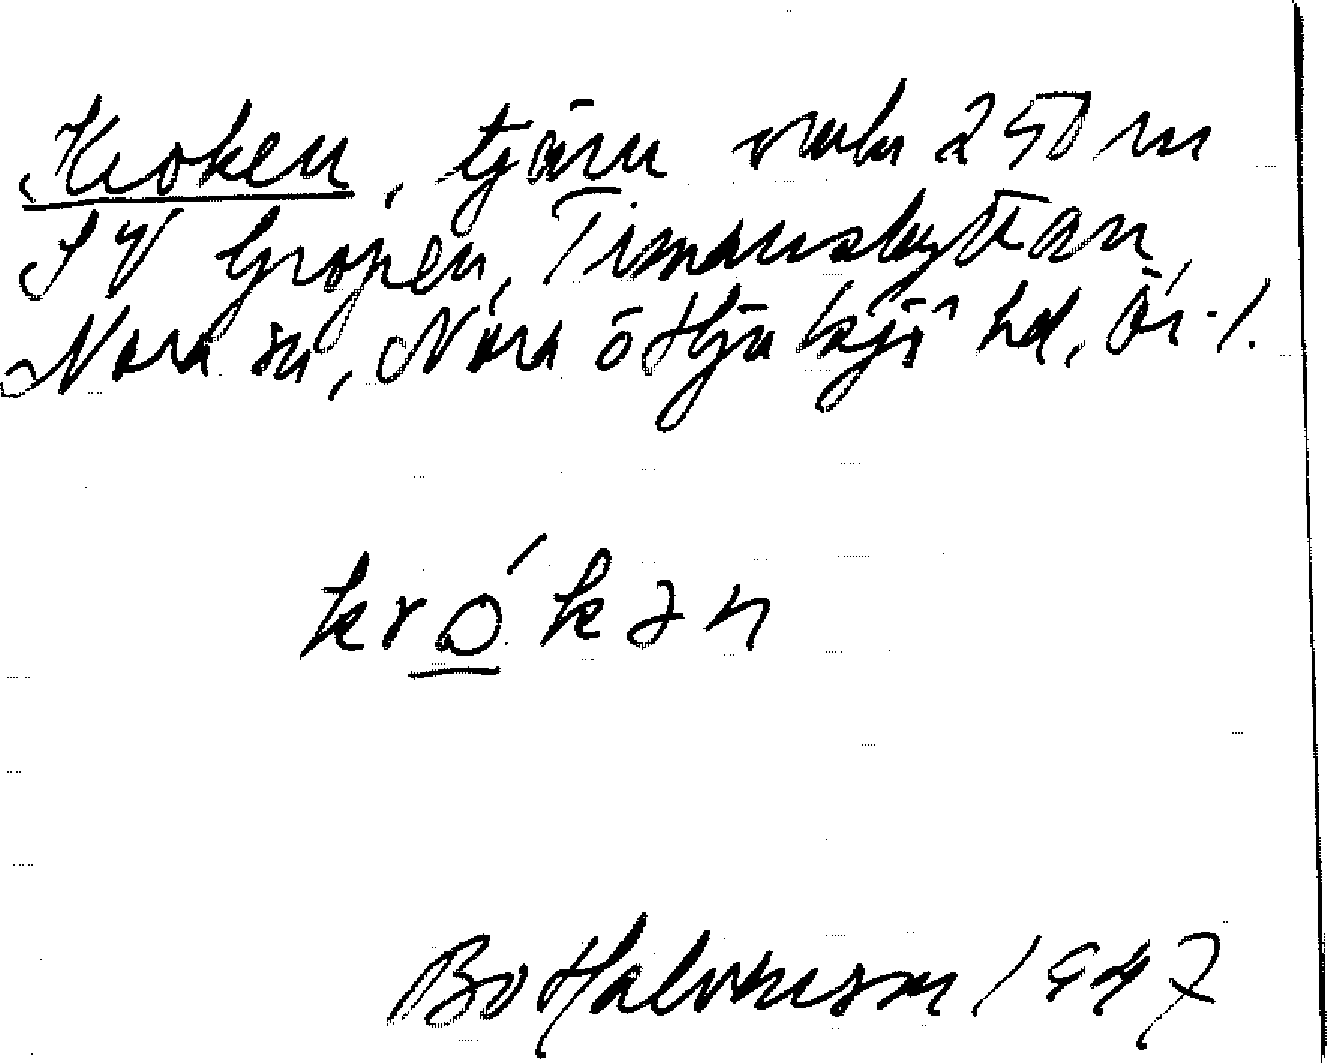 Kroken, tjärn omkr 250 m
SV Gropen, Timanshyttan,
Nora sn, Nora o Hjulsjö hd, Ör. l.
krókən
Bo Halvarsson 1947